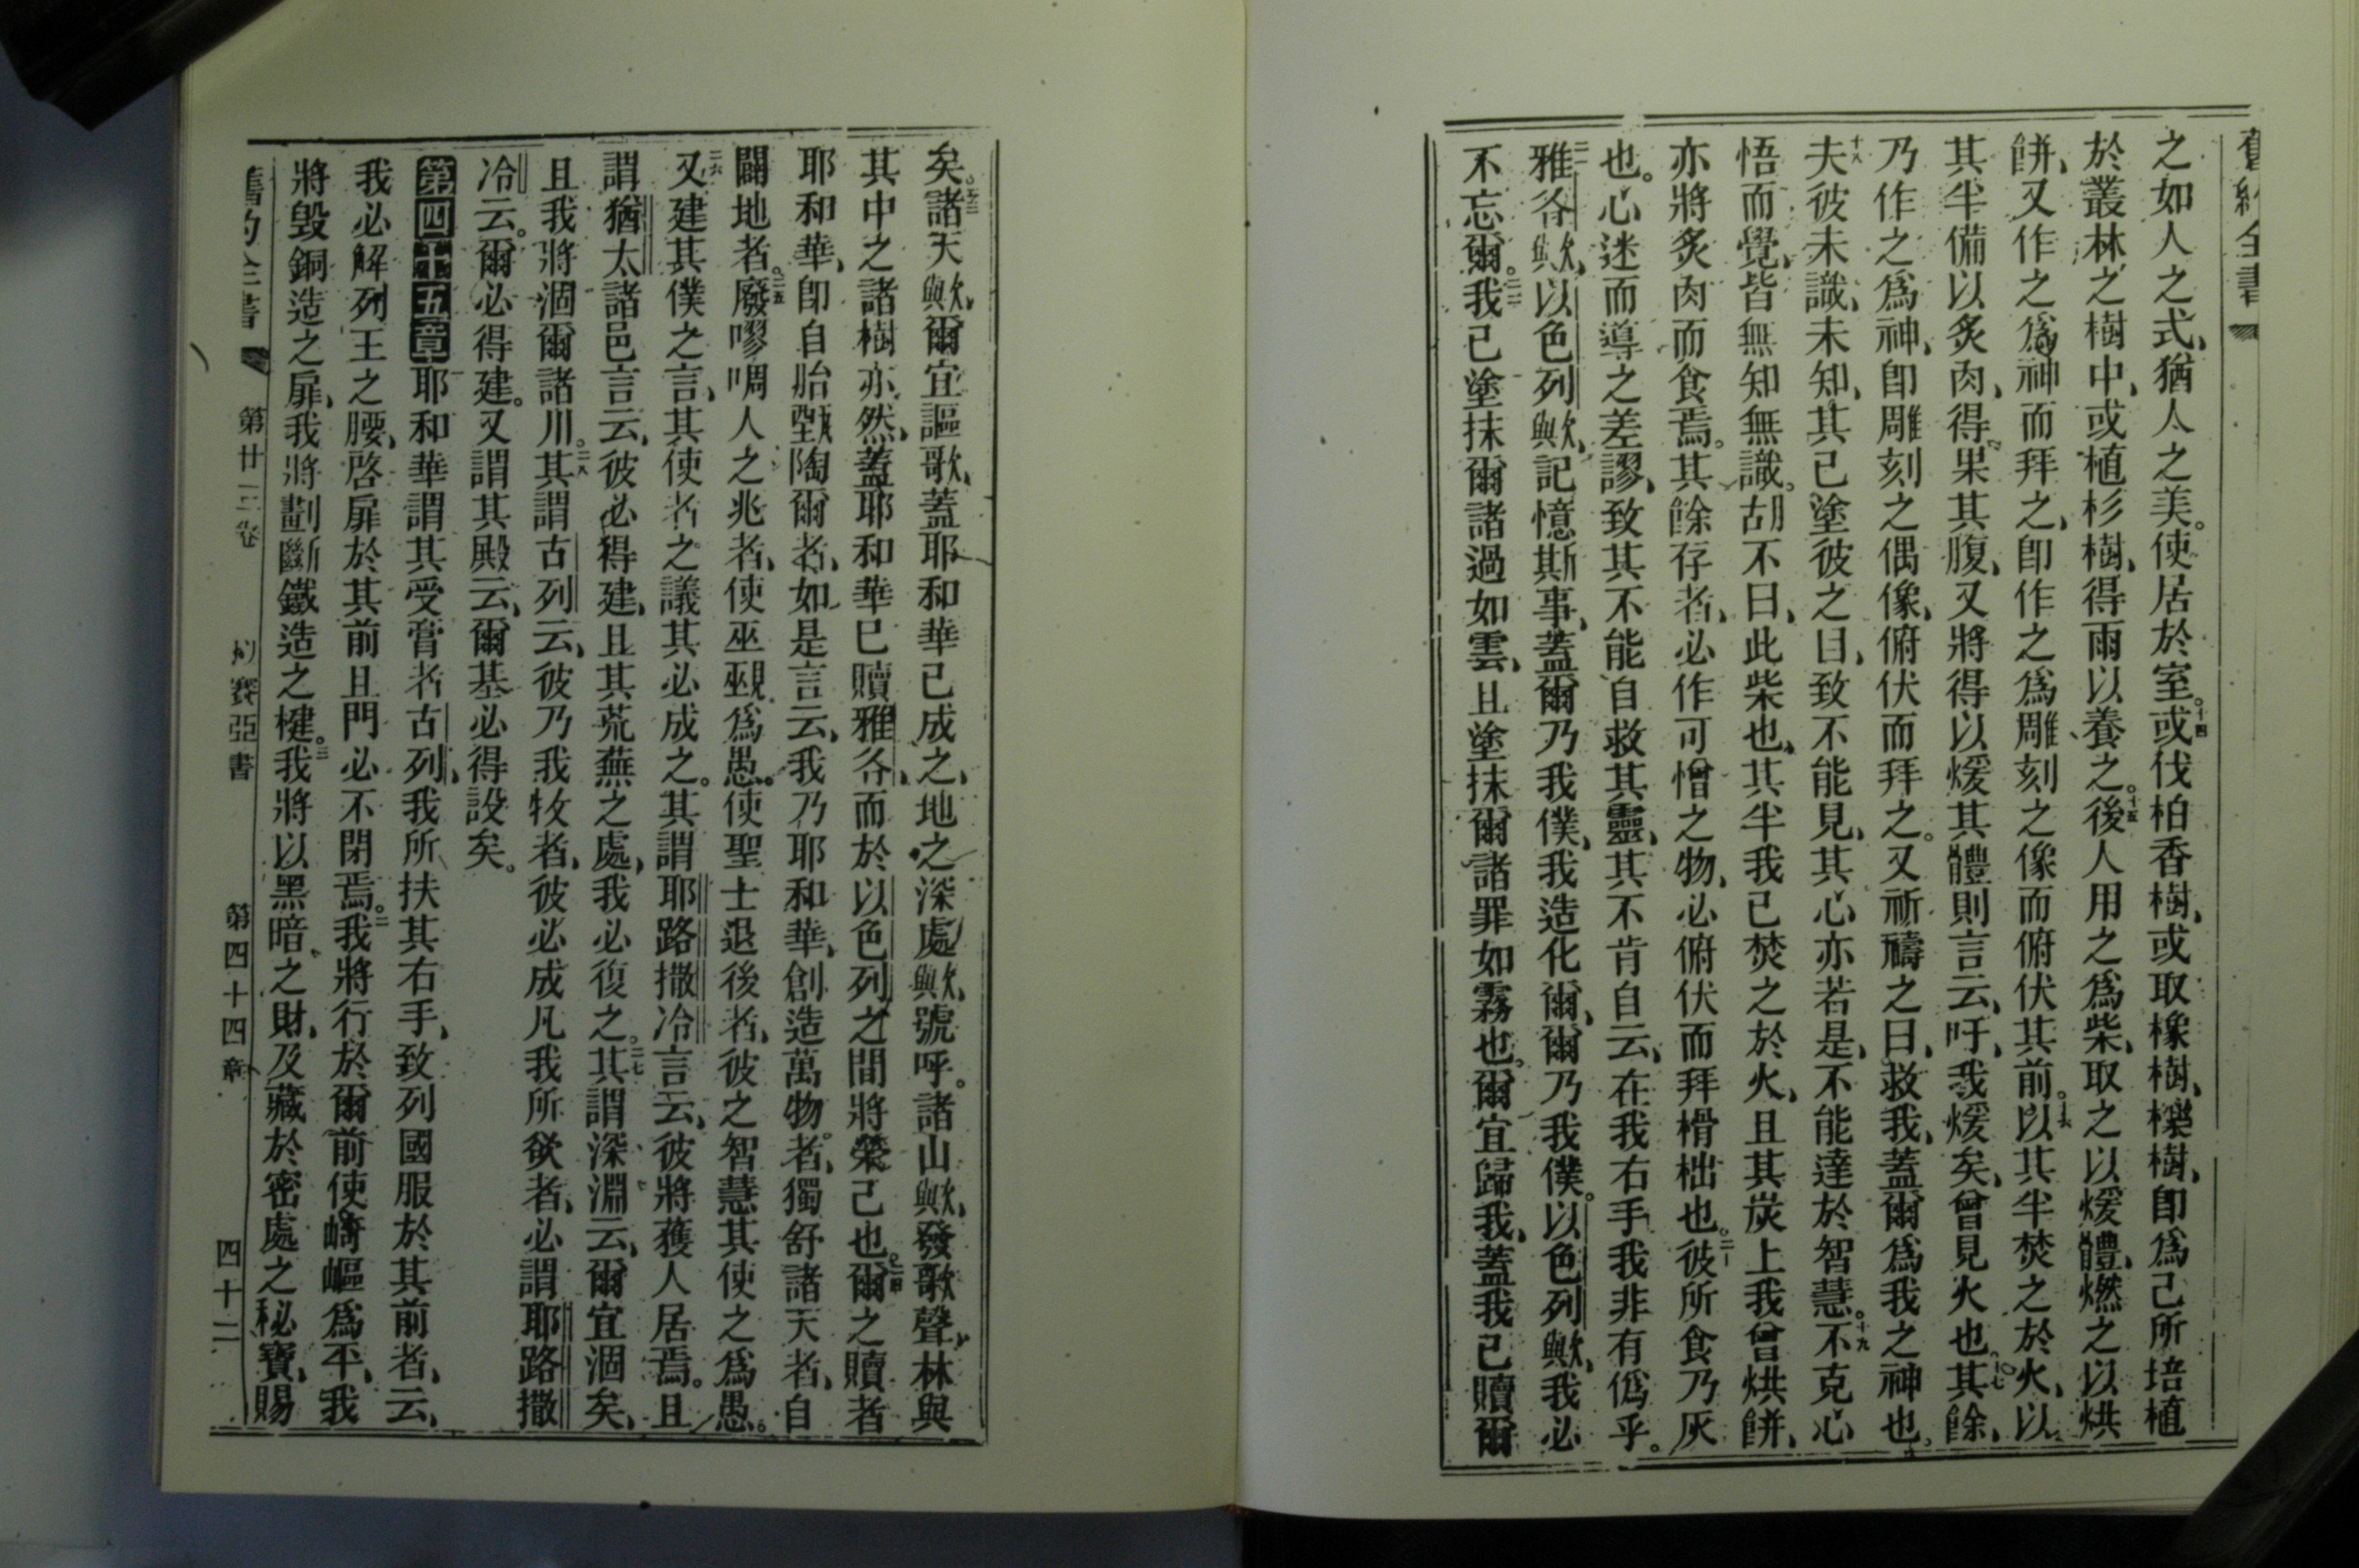 舊約全書
之如人之式、猶人之美。使居於室。十四或伐柏香樹、或取橡樹、櫟樹、卽爲己所培植
於叢林之樹中、或植杉樹、得雨以養之。十五後人用之爲柴、取之以煖體、燃之以烘
餠、又作之爲神而拜之、卽作之爲雕刻之像而俯伏其前。十六以其半焚之於火、以
其半備以炙肉、得果其腹、又將得以煖其體則言云、吁、我煖矣、曾見火也。十七其餘、
乃作之爲神、卽雕刻之偶像、俯伏而拜之。又祈禱之曰、救我、蓋爾爲我之神也。
十八夫彼未識、未知、其已塗彼之目、致不能見、其心亦若是、不能達於智慧。十九不克心
悟而覺、皆無知無識。胡不曰、此柴也、其半我已焚之於火、且其炭上我曾烘餠、
亦將炙肉而食焉。其餘存者、必作可憎之物、必俯伏而拜榾柮也。二十彼所食乃灰
也。心迷而導之差謬、致其不能自救其靈、其不肯自云、在我右手我非有僞乎。
二一雅各歟、以色列歟、記憶斯事、蓋爾乃我僕、我造化爾、爾乃我僕。以色列歟、我必
不忘爾。二二我已塗抹爾諸過如雲、且塗抹爾諸罪如霧也。爾宜歸我、蓋我已贖爾
矣。二三諸天歟、爾宜謳歌、蓋耶和華已成之、地之深處歟、號呼。諸山歟、發歌聲、林與
其中之諸樹亦然、蓋耶和華已贖雅各、而於以色列之間將榮己也。二四爾之贖者
耶和華、卽自胎甄陶爾者、如是言云、我乃耶和華、創造萬物者、獨舒諸天者、自
闢地者。二五廢嘐啁人之兆者、使巫覡爲愚。使聖士退後者、彼之智慧其使之爲愚。
二六又建其僕之言、其使者之議其必成之。其謂耶路撒冷言云、彼將獲人居焉。且
謂猶太諸邑言云、彼必得建、且其荒蕪之處、我必復之。二七其謂深淵云、爾宜涸矣、
且我將涸爾諸川。二八其謂古列云、彼乃我牧者、彼必成凡我所欲者、必謂耶路撒
冷云。爾必得建。又謂其殿云、爾基必得設矣。
第四十五章耶和華謂其受膏者古列、我所扶其右手、致列國服於其前者、云、
我必解列王之腰、啓扉於其前且門必不閉焉。二我將行於爾前使崎嶇爲平、我
將毀銅造之扉、我將劃斷鐵造之楗。三我將以黑暗之財、及藏於密處之秘寶、賜
舊約全書 第廿三卷 以賽亞書 第四十四章 四十二